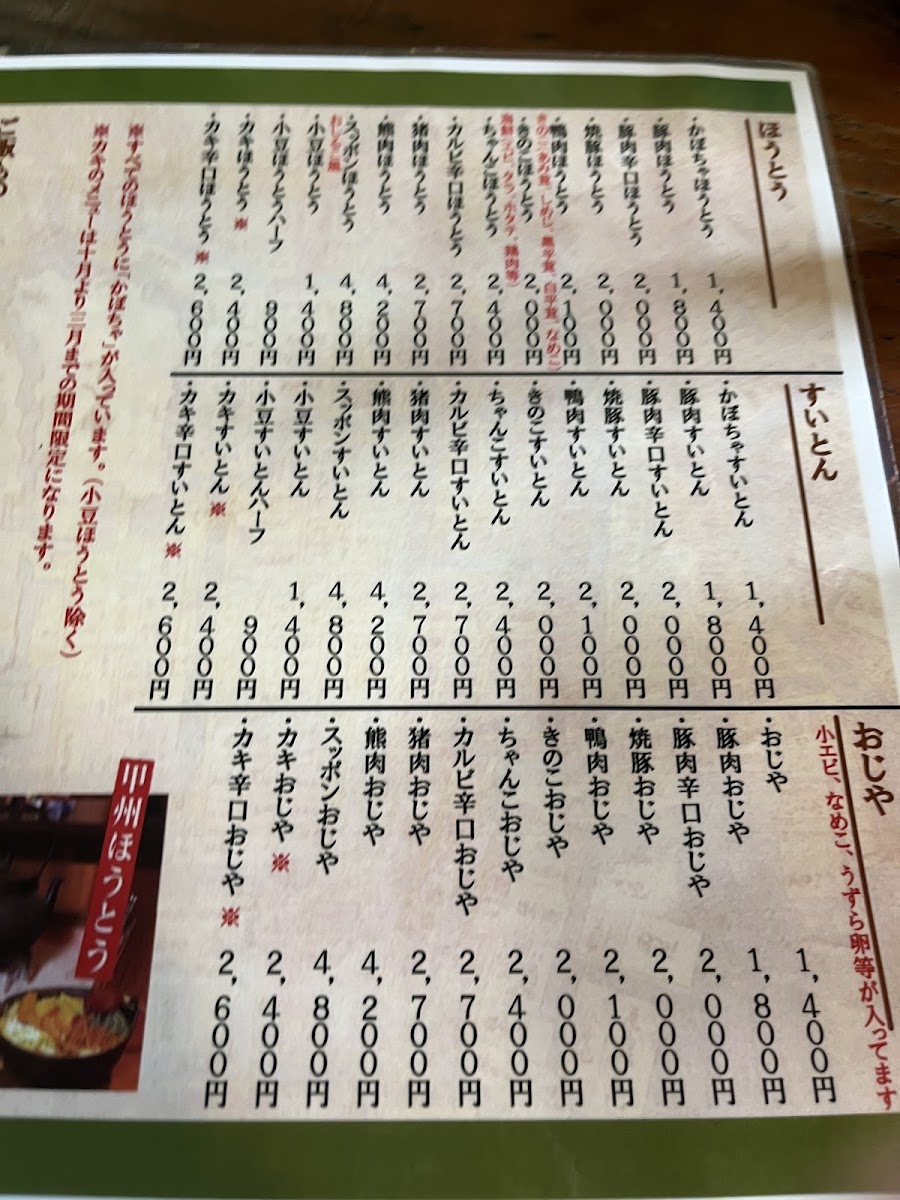 ほうとう
・かぼちゃほうとう 1,400円
・豚肉ほうとう 1,800円
・豚肉辛口ほうとう 2,000円
・焼豚ほうとう 2,000円
・鴨肉ほうとう 2,100円
・きのこほうとう 2,000円
・ちゃんこほうとう 2,400円
海鮮(エビ、タラ、ホタテ、鶏肉等)
・カルビ辛口ほうとう 2,700円
・猪肉ほうとう 2,700円
・熊肉ほうとう 4,200円
・スッポンほうとう 4,800円
・小豆ほうとう 1,400円
おしるこ風
・小豆ほうとうハーフ 900円
・カキほうとう ※ 2,400円
・カキ辛口ほうとう ※ 2,600円
すいとん
・かぼちゃすいとん 1,400円
・豚肉すいとん 1,800円
・豚肉辛口すいとん 2,000円
・焼豚すいとん 2,000円
・鴨肉すいとん 2,100円
・きのこすいとん 2,000円
・ちゃんこすいとん 2,400円
・カルビ辛口すいとん 2,700円
・猪肉すいとん 2,700円
・熊肉すいとん 4,200円
・スッポンすいとん 4,800円
・小豆すいとん 1,400円
・小豆すいとんハーフ 900円
・カキすいとん ※ 2,400円
・カキ辛口すいとん ※ 2,600円
おじや
小エビ、なめこ、うずら卵等が入ってます
・おじや 1,400円
・豚肉おじや 1,800円
・豚肉辛口おじや 2,000円
・焼豚おじや 2,000円
・鴨肉おじや 2,100円
・きのこおじや 2,000円
・ちゃんこおじや 2,400円
・カルビ辛口おじや 2,700円
・猪肉おじや 2,700円
・熊肉おじや 4,200円
・スッポンおじや 4,800円
・カキおじや ※ 2,400円
・カキ辛口おじや ※ 2,600円
※すべてのほうとうに「かぼちゃ」が入っています。(小豆ほうとう除く)
※カキのメニューは十月より三月までの期間限定になります。
甲州ほうとう